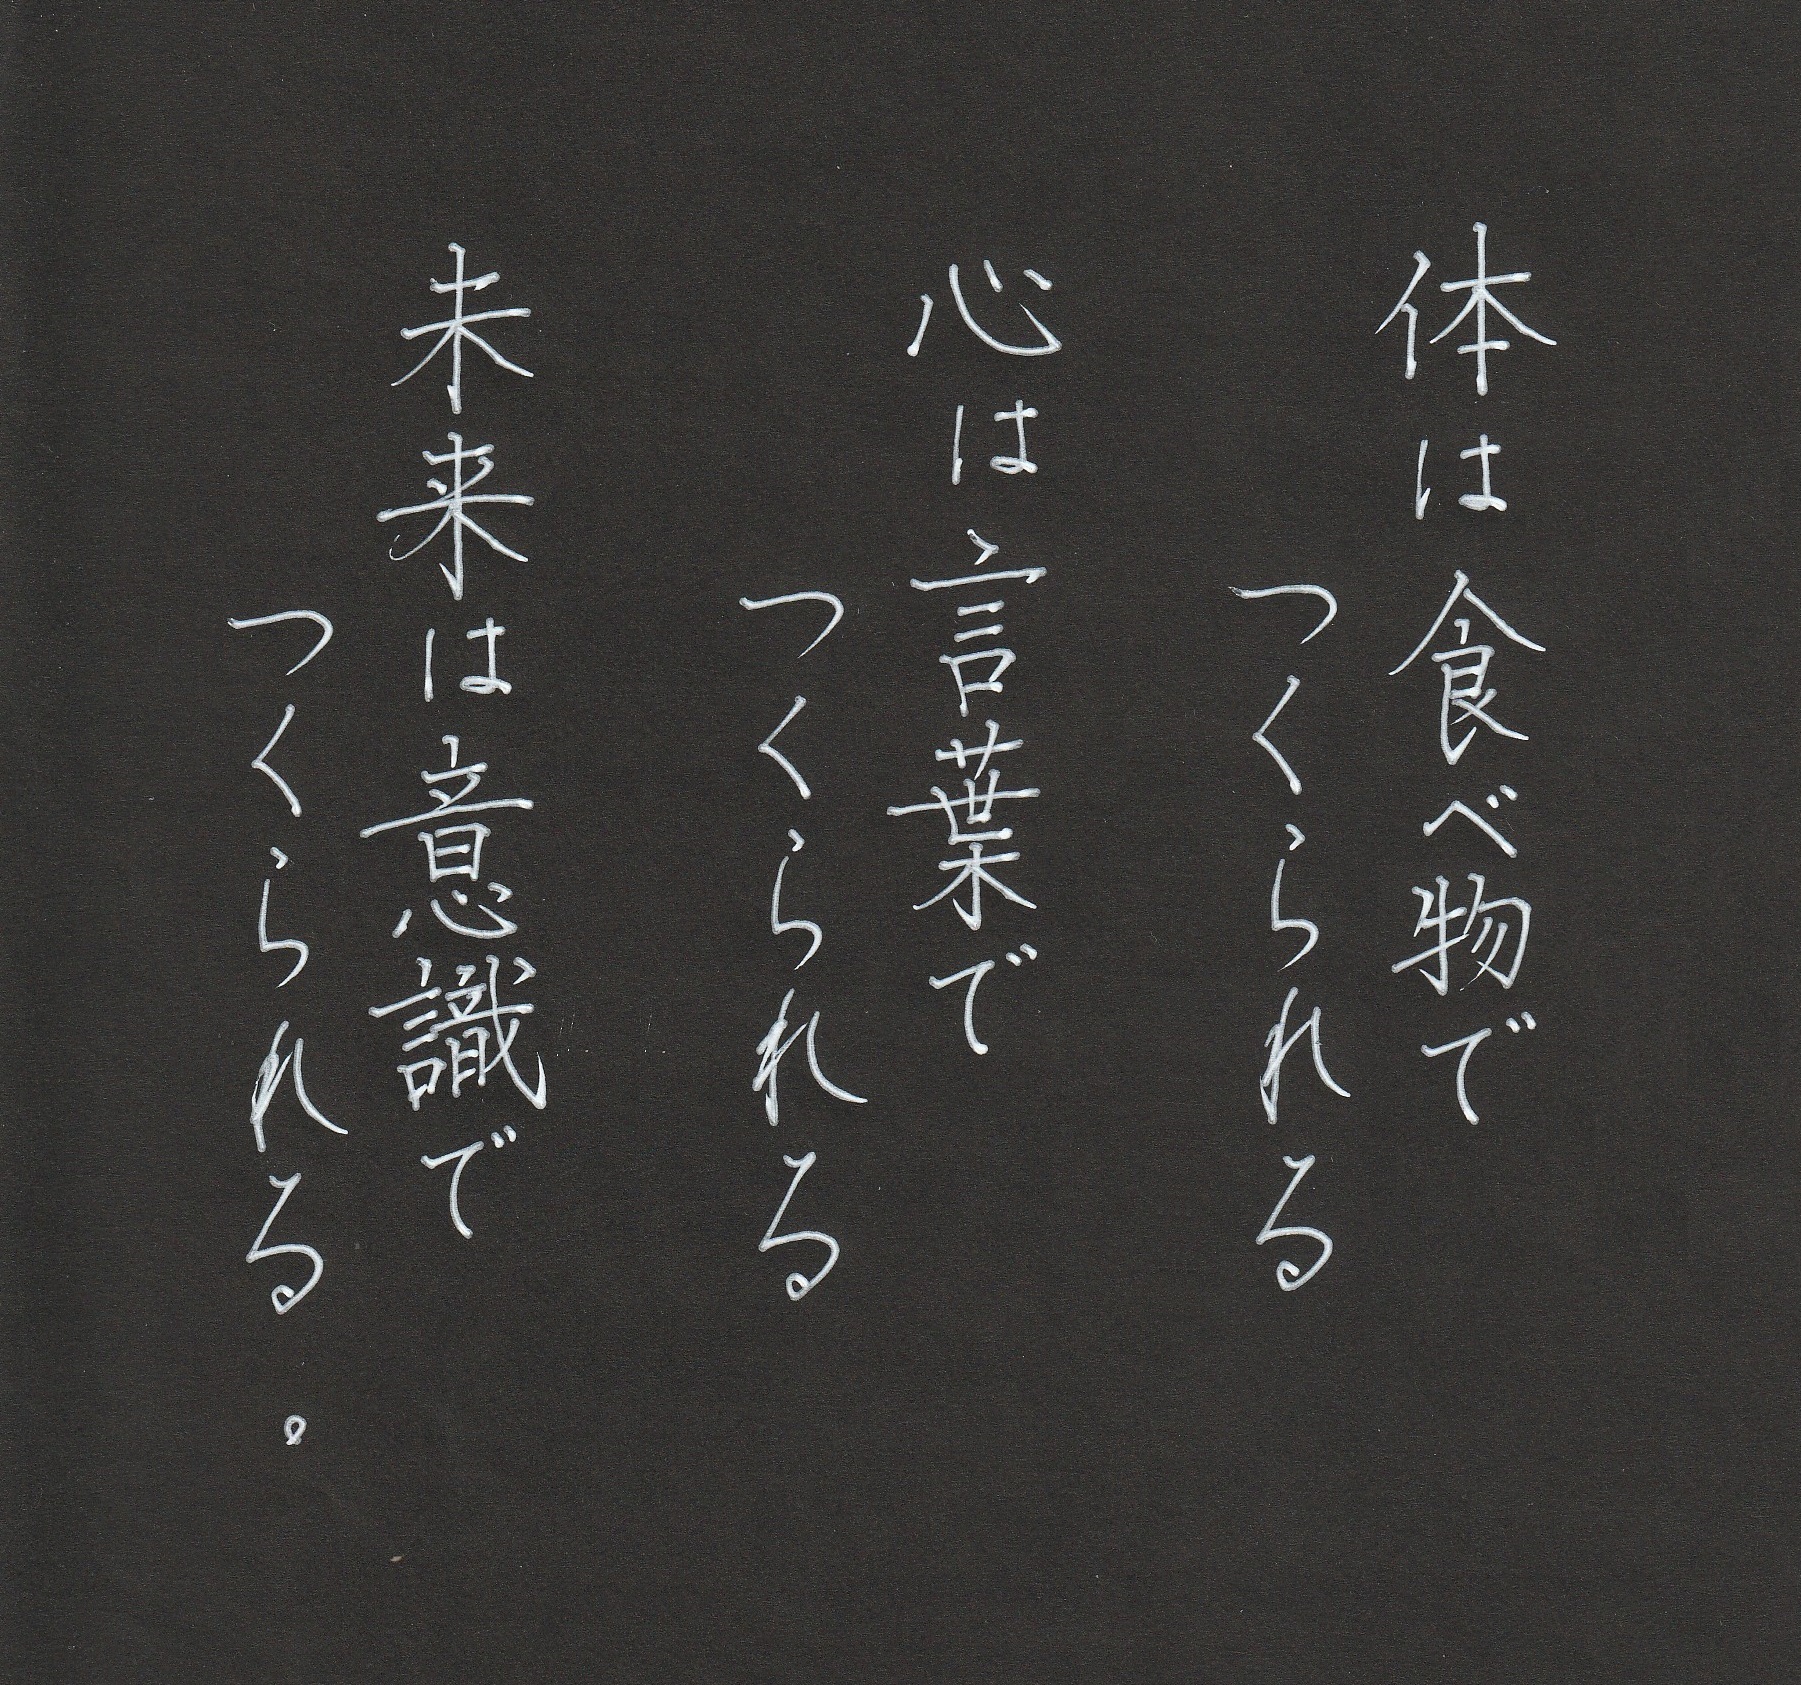 体は食べ物で
つくられる
心は言葉で
つくられる
未来は意識で
つくられる。